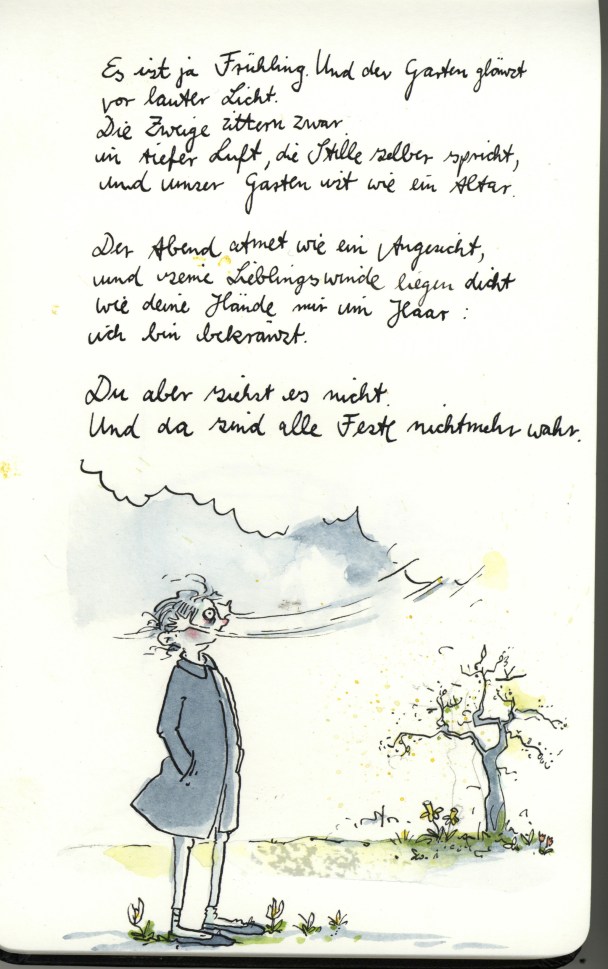 Es ist ja Frühling. Und der Garten glänzt
vor lauter Licht.
Die Zweige zittern zwar
in tiefer Luft, die Stille selber spricht,
und unser Garten ist wie ein Altar.
Der Abend atmet wie ein Angesicht,
und seine Lieblingswinde liegen dicht
wie deine Hände mir im Haar:
ich bin bekränzt.
Du aber siehst es nicht.
Und da sind alle Feste nichtmehr wahr.